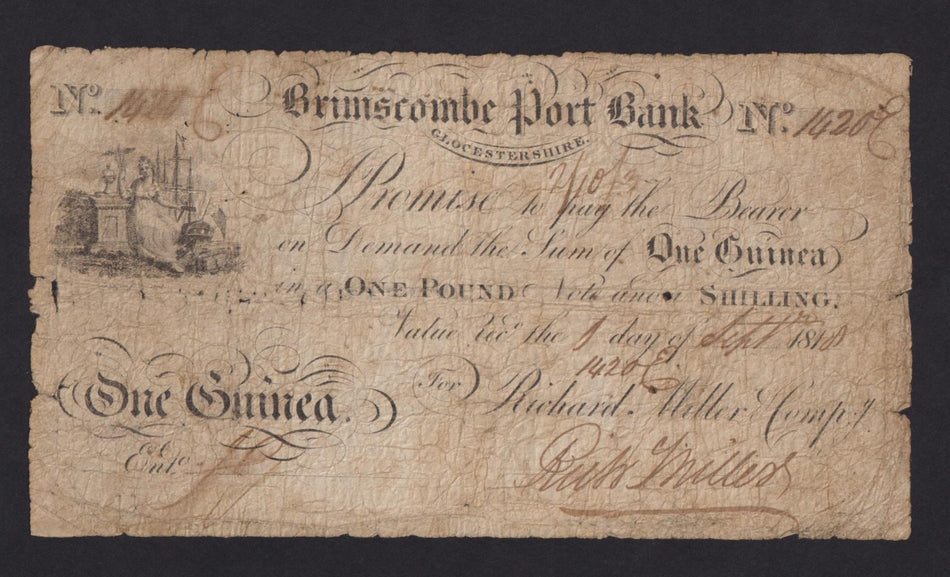 No. 1420 Brimscombe Port Bank No. 1420
GLOCESTERSHIRE.
2/10/3
I Promise to pay the Bearer
on Demand the Sum of One Guinea
in a ONE POUND Note and a SHILLING.
Value Recd. the 1 day of Septr. 1818
1420
One Guinea. For Richard Miller & Compy.
Entd.
Richd Miller